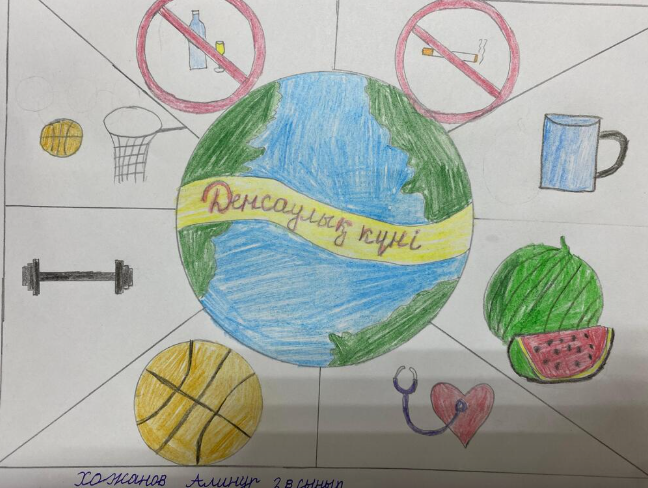 Денсаулық күні
Хожанов Алинур 2 в сынып